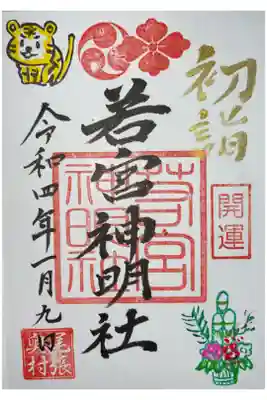 初詣
開運
若宮神明社
若宮
神明社
令和四年一月九日
尾張
奥村